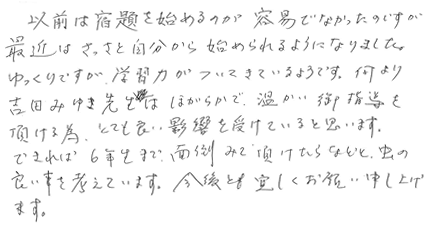 以前は宿題を始めるのが容易でなかったのですが
最近はさっさと自分から始められるようになりました。
ゆっくりですが、学習力がついてきているようです。何より
吉田みゆき先生はほがらかで、温かい御指導を
頂ける為、とても良い影響を受けていると思います。
できれば6年生まで、面倒みて頂けたらなどと、虫の
良い事を考えています。今後とも宜しくお願い申し上げ
ます。